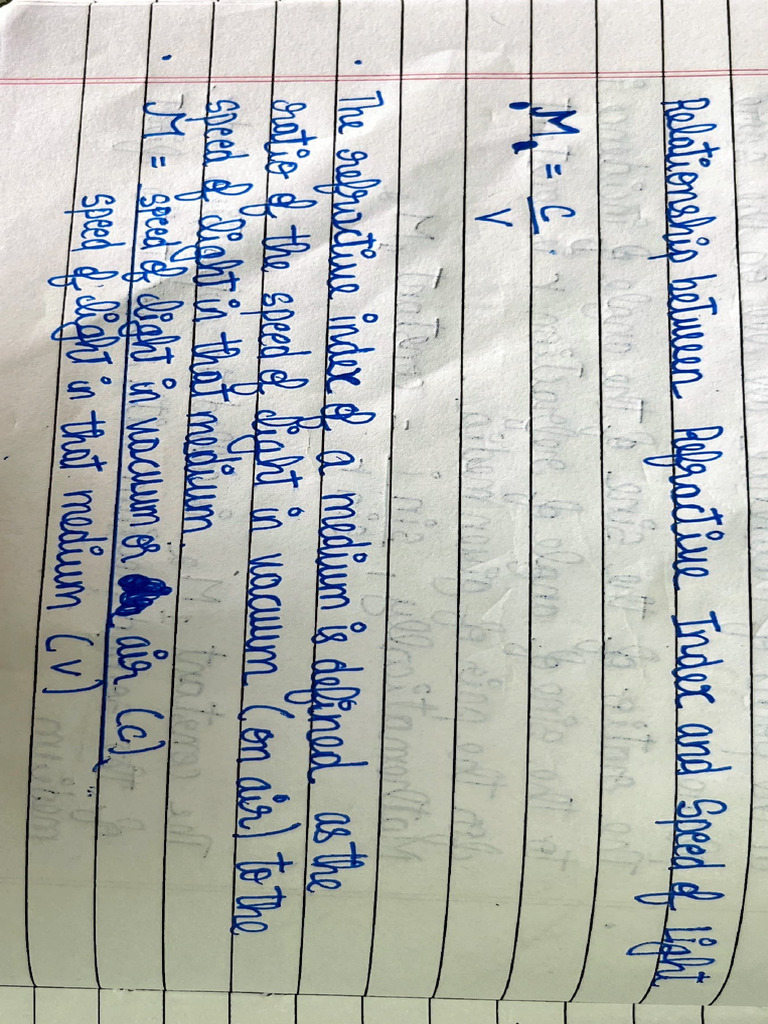 Relationship between Refractive Index and Speed of Light
M = c
v
• The refractive index of a medium is defined as the
ratio of the speed of light in vacuum (on air) to the
speed of light in that medium
• M = speed of light in vacuum or air (c)
speed of light in that medium (v)